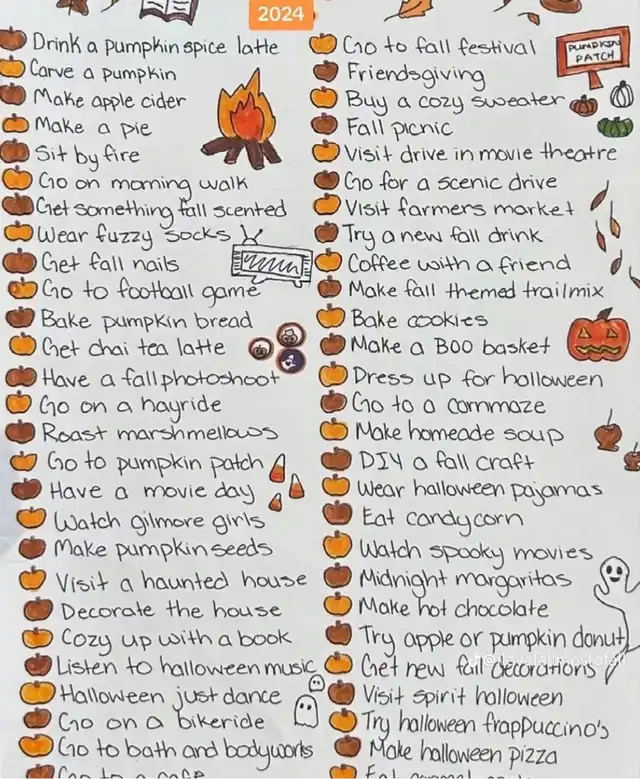 2024
Drink a pumpkin spice latte
Carve a pumpkin
Make apple cider
Make a pie
Sit by fire
Go on morning walk
Get something fall scented
Wear fuzzy socks
Get fall nails
Go to football game
Bake pumpkin bread
Get chai tea latte
Have a fall photoshoot
Go on a hayride
Roast marshmellows
Go to pumpkin patch
Have a movie day
Watch gilmore girls
Make pumpkin seeds
Visit a haunted house
Decorate the house
Cozy up with a book
Listen to halloween music
Halloween just dance
Go on a bikeride
Go to bath and bodyworks
Go to a cafe
PUMPKIN
PATCH
Go to fall festival
Friendsgiving
Buy a cozy sweater
Fall picnic
Visit drive in movie theatre
Go for a scenic drive
Visit farmers market
Try a new fall drink
Coffee with a friend
Make fall themed trailmix
Bake cookies
Make a BOO basket
Dress up for halloween
Go to a cornmaze
Make homeade soup
DIY a fall craft
Wear halloween pajamas
Eat candycorn
Watch spooky movies
Midnight margaritas
Make hot chocolate
Try apple or pumpkin donut
Get new fall decorations
Visit spirit halloween
Try halloween frappuccino's
Make halloween pizza